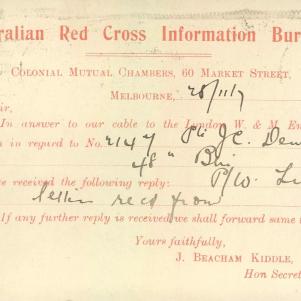 ralian Red Cross Information Bur
COLONIAL MUTUAL CHAMBERS, 60 MARKET STREET,
MELBOURNE, 28/11/17
ir,
In answer to our cable to the London W. & M. En
n in regard to No. 2147 Pte J.C. Dew
46" Bn.
e received the following reply: P/W.
recd from
If any further reply is received we shall forward same t
Yours faithfully,
J. BEACHAM KIDDLE,
Hon Secret